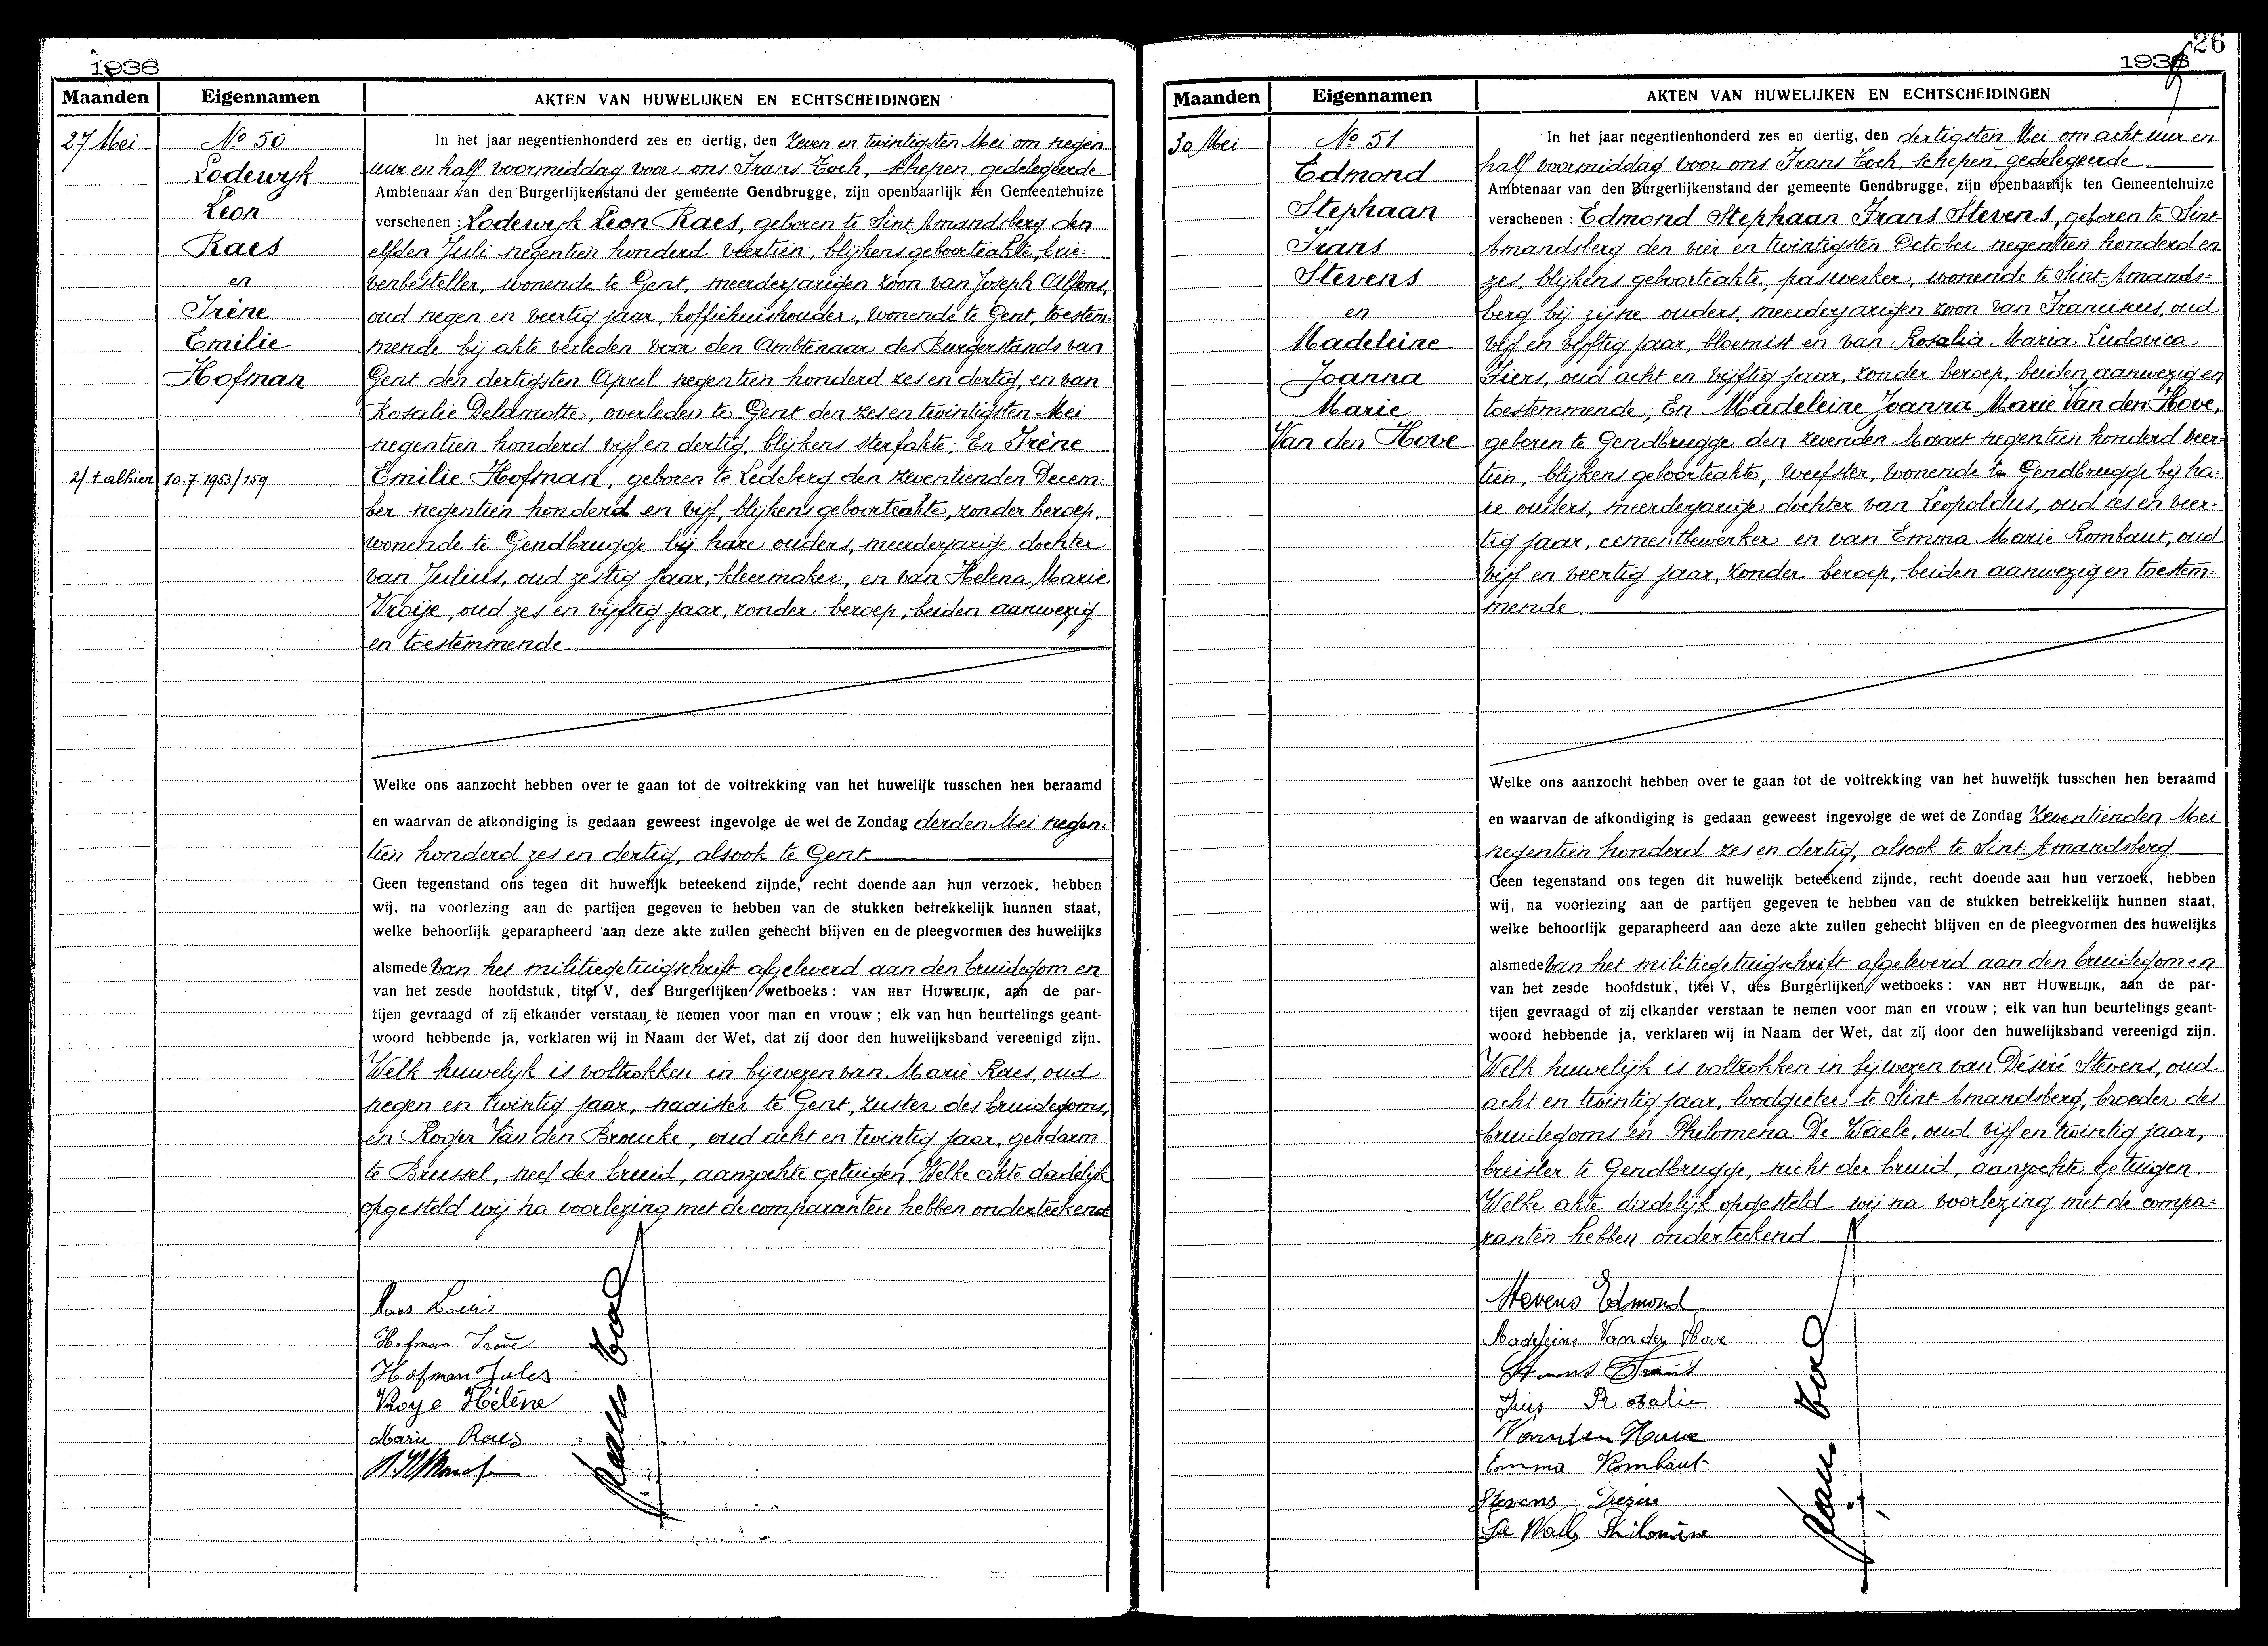 1936
Maanden
Eigennamen
AKTEN VAN HUWELIJKEN EN ECHTSCHEIDINGEN
27 Mei
No 50
Lodewijk
Leon
Raes
en
Irène
Emilie
Hofman
2/ + alhier 10.7.1953/159
In het jaar negentienhonderd zes en dertig, den zeven en twintigsten Mei om negen
uur en half voormiddag voor ons Frans Toch, schepen, gedelegeerde
Ambtenaar van den Burgerlijkenstand der gemeente Gendbrugge, zijn openbaarlijk ten Gemeentehuize
verschenen : Lodewijk Leon Raes, geboren te Sint Amandsberg den
elfden Juli negentien honderd veertien, blijkens geboorteakte, brie-
venbesteller, wonende te Gent, meerderjarigen zoon van Joseph Alfons,
oud negen en veertig jaar, koffiehuishouder, wonende te Gent, toestem-
mende bij akte verleden voor den Ambtenaar des Burgerstands van
Gent den dertigsten April negentien honderd zes en dertig, en van
Rosalie Delamotte, overleden te Gent den zes en twintigsten Mei
negentien honderd vijf en dertig, blijkens sterfakte; En Irène
Emilie Hofman, geboren te Ledeberg den zeventienden Decem-
ber negentien honderd en vijf, blijkens geboorteakte, zonder beroep,
wonende te Gendbrugge bij hare ouders, meerderjarige dochter
van Julius, oud zestig jaar, kleermaker, en van Helena Marie
Vroije, oud zes en vijftig jaar, zonder beroep, beiden aanwezig
en toestemmende
Welke ons aanzocht hebben over te gaan tot de voltrekking van het huwelijk tusschen hen beraamd
en waarvan de afkondiging is gedaan geweest ingevolge de wet de Zondag derden Mei negen-
tien honderd zes en dertig, alsook te Gent
Geen tegenstand ons tegen dit huwelijk beteekend zijnde, recht doende aan hun verzoek, hebben
wij, na voorlezing aan de partijen gegeven te hebben van de stukken betrekkelijk hunnen staat,
welke behoorlijk geparapheerd aan deze akte zullen gehecht blijven en de pleegvormen des huwelijks
alsmede van het militiegetuigschrift afgeleverd aan den bruidegom en
van het zesde hoofdstuk, titel V, des Burgerlijken wetboeks : VAN HET HUWELIJK, aan de par-
tijen gevraagd of zij elkander verstaan te nemen voor man en vrouw ; elk van hun beurtelings geant-
woord hebbende ja, verklaren wij in Naam der Wet, dat zij door den huwelijksband vereenigd zijn.
Welk huwelijk is voltrokken in bijwezen van Marie Raes, oud
negen en twintig jaar, naaister te Gent, zuster des bruidegoms,
en Roger Van den Broucke, oud acht en twintig jaar, gendarm
te Brussel, neef der bruid, aanzochte getuigen. Welke akte dadelijk
opgesteld wij na voorlezing met de comparanten hebben onderteekend
Raes Louis
Hofman Irène
Hofman Jules
Vroye Hélène
Marie Raes
26
1936
Maanden
Eigennamen
AKTEN VAN HUWELIJKEN EN ECHTSCHEIDINGEN
30 Mei
No 51
Edmond
Stephaan
Frans
Stevens
en
Madeleine
Joanna
Marie
Van den Hove
In het jaar negentienhonderd zes en dertig, den dertigsten Mei om acht uur en
half voormiddag voor ons Frans Toch, schepen, gedelegeerde
Ambtenaar van den Burgerlijkenstand der gemeente Gendbrugge, zijn openbaarlijk ten Gemeentehuize
verschenen : Edmond Stephaan Frans Stevens, geboren te Sint-
Amandsberg den vier en twintigsten October negentien honderd en
zes, blijkens geboorteakte, paswerker, wonende te Sint-Amands-
berg bij zijne ouders, meerderjarigen zoon van Franciscus, oud
vijf en vijftig jaar, bloemist en van Rosalia Maria Ludovica
Fiers, oud acht en vijftig jaar, zonder beroep, beiden aanwezig en
toestemmende; En Madeleine Joanna Marie Van den Hove,
geboren te Gendbrugge den zevenden Maart negentien honderd veer-
tien, blijkens geboorteakte, weefster, wonende te Gendbrugge bij ha-
re ouders, meerderjarige dochter van Leopoldus, oud zes en veer-
tig jaar, cementbewerker en van Emma Marie Rombaut, oud
vijf en veertig jaar, zonder beroep, beiden aanwezig en toestem-
mende
Welke ons aanzocht hebben over te gaan tot de voltrekking van het huwelijk tusschen hen beraamd
en waarvan de afkondiging is gedaan geweest ingevolge de wet de Zondag zeventienden Mei
negentien honderd zes en dertig, alsook te Sint Amandsberg
Geen tegenstand ons tegen dit huwelijk beteekend zijnde, recht doende aan hun verzoek, hebben
wij, na voorlezing aan de partijen gegeven te hebben van de stukken betrekkelijk hunnen staat,
welke behoorlijk geparapheerd aan deze akte zullen gehecht blijven en de pleegvormen des huwelijks
alsmede van het militiegetuigschrift afgeleverd aan den bruidegom en
van het zesde hoofdstuk, titel V, des Burgerlijken wetboeks : VAN HET HUWELIJK, aan de par-
tijen gevraagd of zij elkander verstaan te nemen voor man en vrouw ; elk van hun beurtelings geant-
woord hebbende ja, verklaren wij in Naam der Wet, dat zij door den huwelijksband vereenigd zijn.
Welk huwelijk is voltrokken in bijwezen van Désiré Stevens, oud
acht en twintig jaar, loodgieter te Sint Amandsberg, broeder des
bruidegoms en Philomena De Waele, oud vijf en twintig jaar,
breister te Gendbrugge, nicht der bruid, aanzochte getuigen.
Welke akte dadelijk opgesteld wij na voorlezing met de compa-
ranten hebben onderteekend.
Stevens Edmond
Madeleine Van den Hove
Stevens Frans
Fiers Rosalie
Vanden Hove
Emma Rombaut
Stevens Dezire
De Waele Philomène